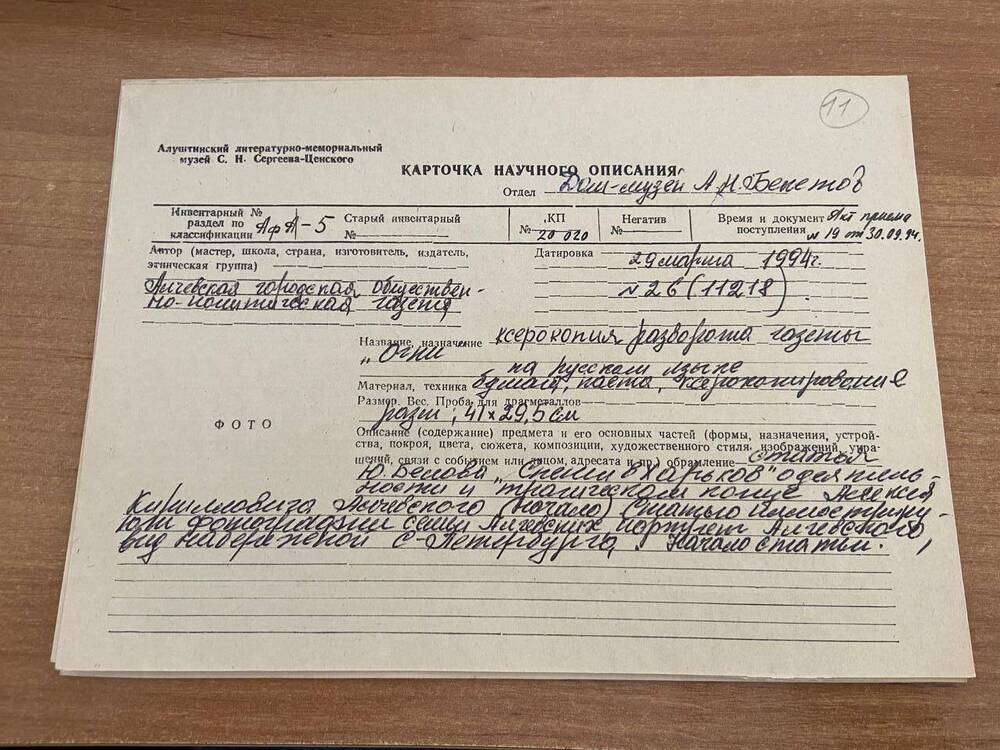 11
Алуштинский литературно-мемориальный
музей С. Н. Сергеева-Ценского
КАРТОЧКА НАУЧНОГО ОПИСАНИЯ
Отдел Дом-музей А.Н.Бекетов
Инвентарный № раздел по классификации АфА-5 Старый инвентарный № КП № 20 020 Негатив № Время и документ поступления Акт приема № 19 от 30.09.94.
Автор (мастер, школа, страна, изготовитель, издатель,
этническая группа)
Алчевская городская обществен-
но-политическая газета
Датировка 29 марта 1994г.
№ 26 (11218)
Название, назначение ксерокопия разворота газеты
„Огни
на русском языке
Материал, техника бумага, паста, ксерокопирование
Размер. Вес. Проба для драгметаллов
разм; 41х29,5 см
ФОТО
Описание (содержание) предмета и его основных частей (формы, назначения, устрой-
ства, покроя, цвета, сюжета, композиции, художественного стиля, изображений, укра-
шений, связи с событием или лицом, адресата и пр.) обрамление статья
Ю. Белова „ в Харьков" о деятель
ности и трагическом конце Алексея
Кирилловича Алчевского (начало) Статью иллюстриру-
ют фотографии семьи Алчевских, портрет Алчевского,
вид набережной С-Петербурга, Начало статьи.